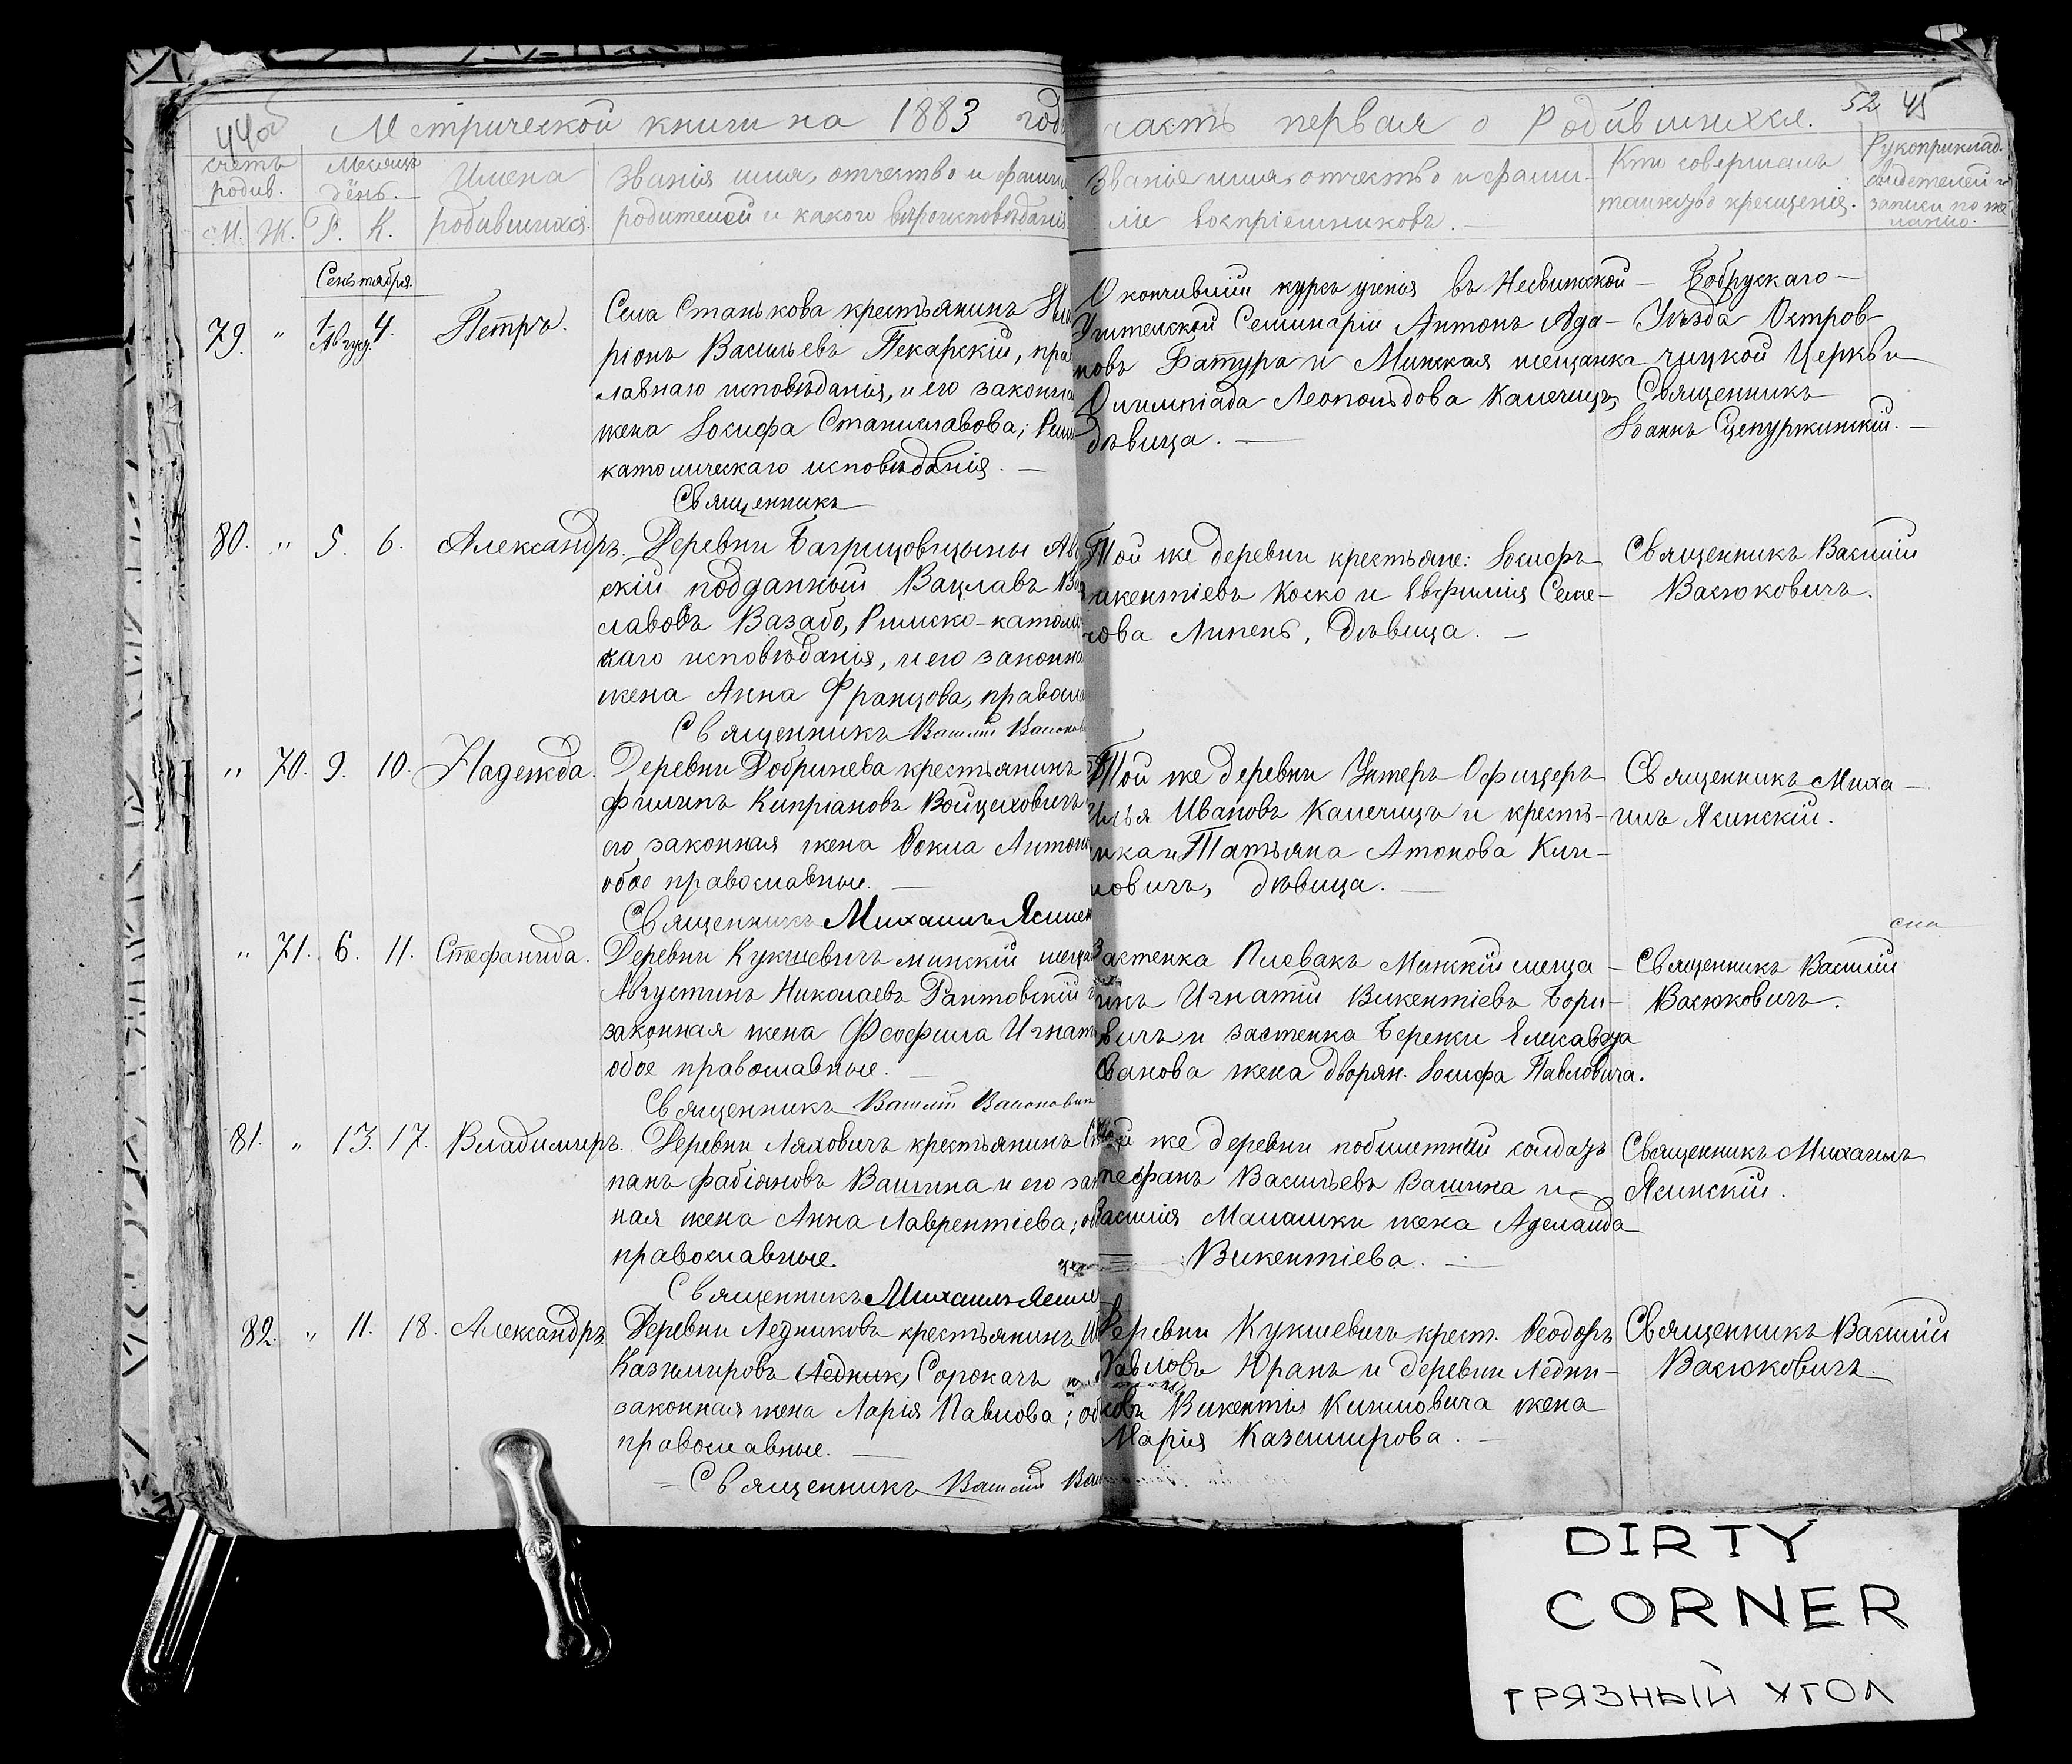 44об
Метрической книги на 1883 годъ часть первая о Родившихся. 52 45
Счетъ родив.
М. Ж.
Месяцъ день.
Р. К.
Имена
родившихся.
Званія имя, отчество и фамил
родителей и какого вѣроисповѣданія
Званіе имя, отчество и фами-
ліе воспріемниковъ. —
Кто совершалъ
таинство крещенія.
Рукоприклад.
свидетелей
записи по же
ланію.
Сентября.
79. " 1 Август 4. Петръ.
Села Станькова крестьянинъ
ріонъ Васильевъ Пекарскій, пра
лавнаго исповѣданія, и его законна
жена Іосифа Станиславова; Рим
католическаго исповѣданія. —
Священникъ
Окончившій курсъ ученія въ Несвижской
Учительской Семинаріи Антонъ Ада-
мовъ Батура и Минская мещанка
Олимпіада Леопольдова Капечицъ,
дѣвица. —
— Бобруйскаго —
Уѣзда Остров-
чицкой Церкви
Священникъ
Іоаннъ Сцепуржинскій. —
80. " 5. 6. Александръ.
Деревни Багрицовщины Ав
скій подданный Вацлавъ
славовъ Вазабо, Римско-катол
каго исповѣданія, и его законна
жена Анна Францова, правосл
Священникъ Василій Васюков
Той же деревни крестьяне: Іосифъ
Викентіевъ Коско и Евфимія Семе-
нова Липень, Дѣвица. —
Священникъ Василій
Васюковичъ.
" 70. 9. 10. Надежда.
Деревни Добринева крестьянинъ
Филипъ Кипріановъ Войцеховичъ
его законная жена Фекла Антон
обое православные. —
Священникъ Михаилъ Ясинск
Той же деревни Унтеръ-Офицеръ
Илья Ивановъ Капечицъ и кресть-
янка Татьяна Атонова Кли-
мовичъ, дѣвица. —
Священникъ Миха-
илъ Ясинскій.
" 71. 6. 11. Стефанида.
Деревни Кукшевичъ минскій меща
Августинъ Николаевъ Рантовскій
законная жена Феофила Игнат
обое православные. —
Священникъ Василій Васюкович
Застенка Плевакъ Минскій меща-
нинъ Игнатій Викентіевъ Бори-
вичъ и застенка Бережи Елисавета
Іванова жена дворян. Іосифа Павловича.
Священникъ Василій
Васюковичъ.
81. " 13. 17. Владимиръ.
Деревни Ляховичъ крестьянинъ
панъ Фабіяновъ Вашина и его зак
ная жена Анна Лаврентіева; об
православные.
Священникъ Михаилъ Ясин
Той же деревни побилетный солдатъ
Стефанъ Васильевъ Вашина и
Василія Малашки жена Аделаида
Викентіева. —
Священникъ Михаилъ
Ясинскій.
82. " 11. 18. Александръ
Деревни Ледникова крестьянинъ
Казимировъ Ледникъ Сорокачъ
законная жена Марія Павлова; об
православные. —
= Священникъ Василій Вас
Деревни Кукшевичъ крест. Феодоръ
Павловъ Юранъ и деревни Ледни-
кова Викентія Климовича жена
Марія Казимирова. —
Священникъ Василій
Васюковичъ
DIRTY
CORNER
ГРЯЗНЫЙ УГОЛ